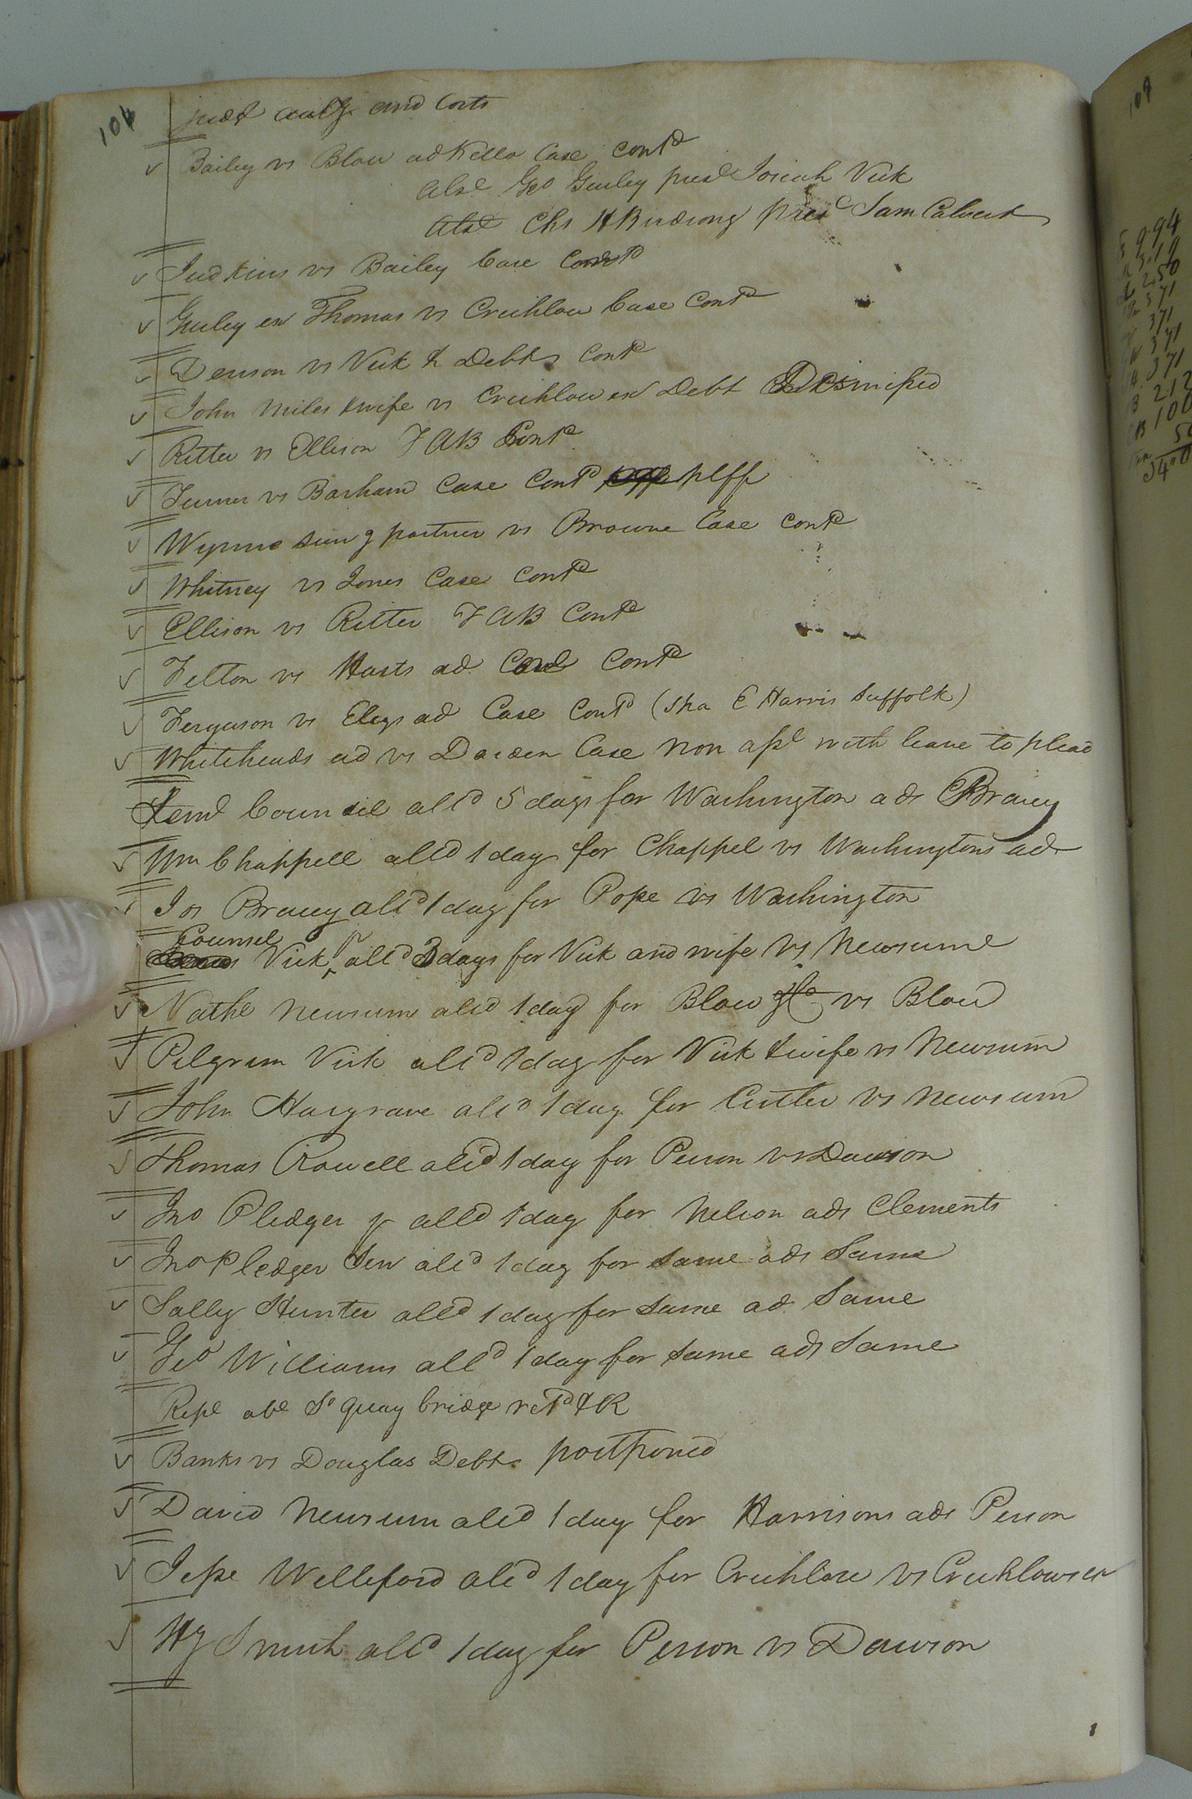 104
judt and costs
Bailey vs Blow ad Kello Case Contd
Absd Geo Gurley presd Josiah Vick
Absd Chs H Birdsong presd Sam Calvert
Judkins vs Bailey Case Contd
Gurley ex Thomas vs Crichlow Case Contd
Denson vs Vick & Debt Contd
John Miles & wife vs Crichlow ex Debt Dismissed
Ritter vs Ellison T AB Contd
Turner vs Barham Case Contd plff
Wynne surv g partner vs Browne Case Contd
Whitney vs Jones Case Contd
Ellison vs Ritter T AB Contd
Felton vs Harts ad Contd
Ferguson vs ad Case Contd (Spa E Harris Suffolk)
Whiteheads ad vs Darden Case Non asst with leave to plead
Council alld 5 days for Washington ads Braney
Wm Chappell alld 1 day for Chappel vs Washingtons ad
Jos Braney alld 1 day for Pope vs Washington
Counsel Vick jr alld 3 days for Vick and wife vs Newsume
Nathl Newsum alld 1 day for Blow vs Blow
Pilgram Vick alld 1 day for Vick & wife vs Newsum
John Hargrave alld 1 day for Cutler vs Newsum
Thomas Rowell alld 1 day for Person vs Dawson
Jno Pledger jr alld 1 day for Nelson ads Clements
Jno Pledger Sen alld 1 day for same ads Same
Sally Hunter alld 1 day for same ad Same
Geo Williams alld 1 day for same ads Same
Rept abt So quay bridge retd & R
Banks vs Douglas Debt postponed
David Newsum alld 1 day for Harrisons ads Person
Jesse Welleford alld 1 day for Crichlow vs Crichlows ex
Hy Smith alld 1 day for Person vs Dawson
994
319
250
371
371
371
371
212
100